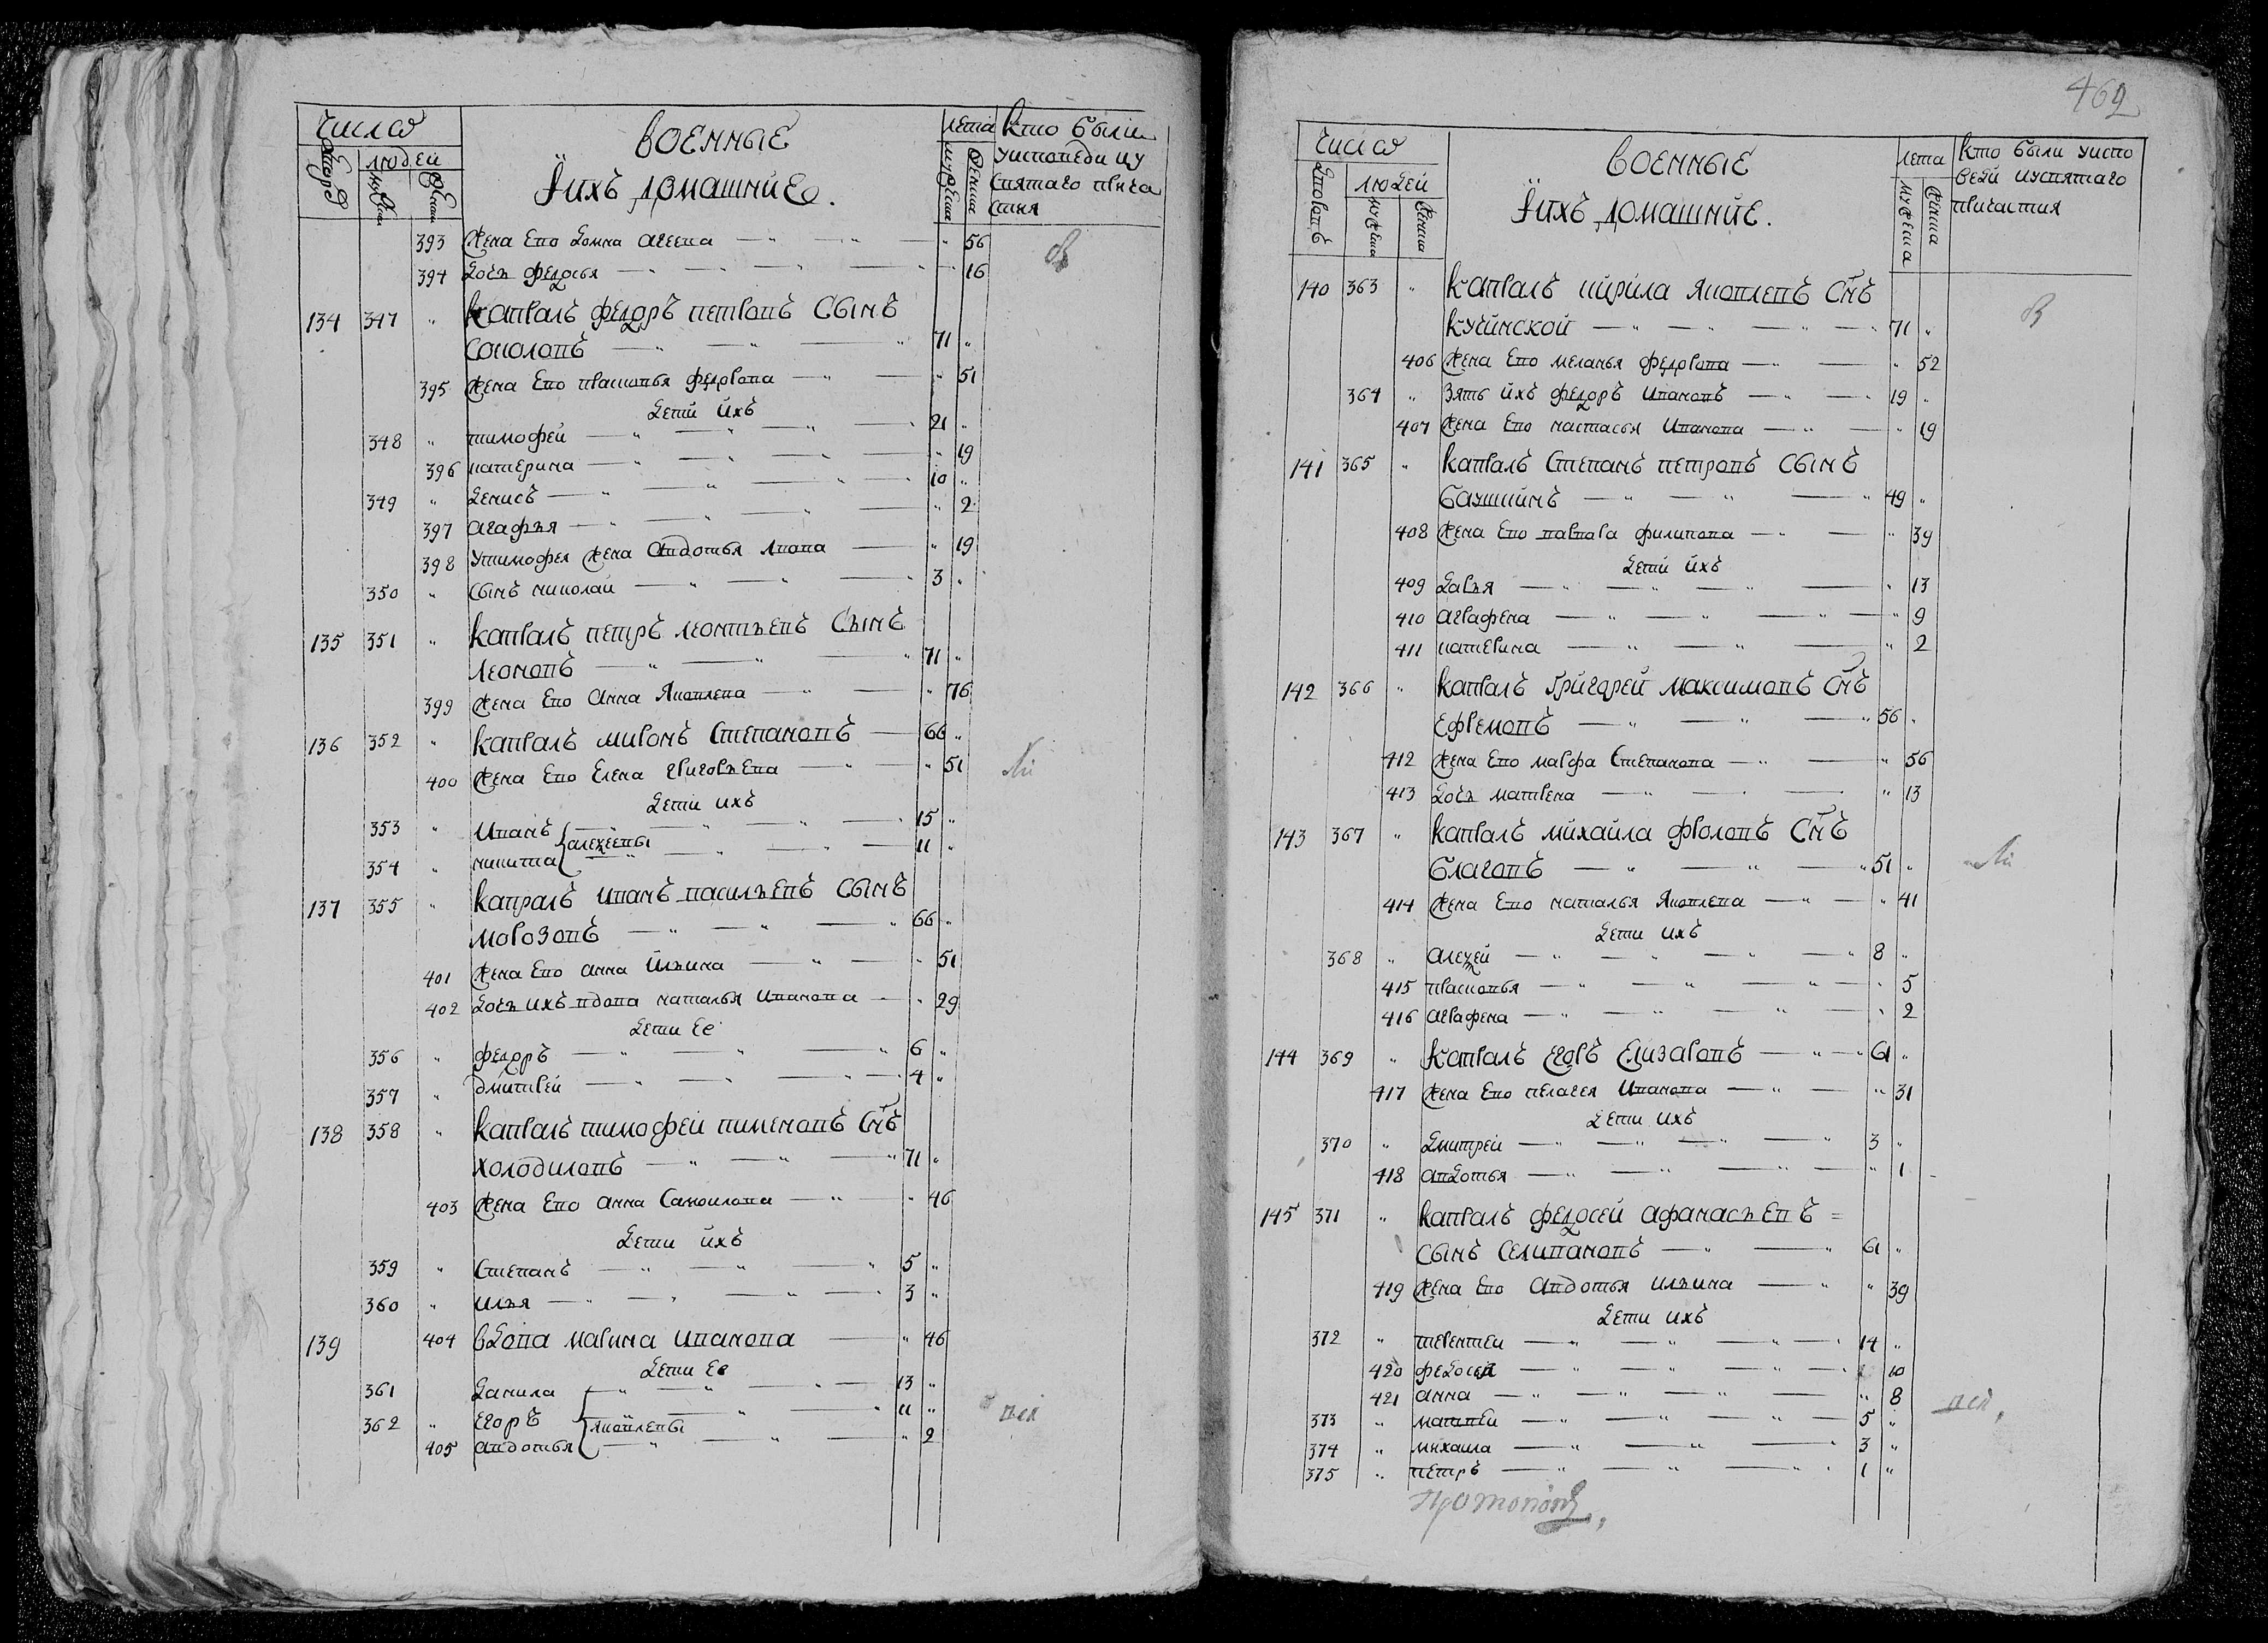 Число
дворовъ
людей
мужеска
женска
военные
и ихъ домашние.
лета
мужеска
женска
кто были
уисповеди иу
святаго прича
стия
393 жена ево домна агеева 56
394 дочь федосья 16
134 347 капралъ федоръ петровъ сынъ
соколовъ 71
395 жена ево прасковья федорова 51
дети ихъ
348 тимофей 21
396 катерина 19
349 денисъ 10
397 агафья 2
398 утимофея жена авдотья лвова 19
350 сынъ николай 3
135 351 капралъ петръ леонтьевъ сынъ
леоновъ 71
399 жена ево анна яковлева 76
136 352 капралъ миронъ степановъ 66
400 жена ево елена григорьева 51
дети ихъ
353 иванъ 15
алезеевы
354 никита 11
137 355 капралъ иванъ васильевъ сынъ
морозовъ 66
401 жена ево анна ильина 51
402 дочь ихъ вдова наталья иванова 29
дети ее
356 федоръ 6
357 дмитрей 4
138 358 капралъ тимофей пименовъ снъ
холодиловъ 71
403 жена ево анна самоилова 46
дети ихъ
359 степанъ 5
360 илья 3
139 404 вдова марина иванова 46
дети ее
361 данила 13
362 егоръ 11
яковлевы
405 авдотья 2
462
Число
дворовъ
людей
мужеска
женска
военные
и ихъ домашние.
лета
мужеска
женска
кто были уиспо
веди иусвятаго
причастия
140 363 капралъ кирила яковлевъ снъ
кучинской 71
406 жена ево меланья федорова 52
364 зять ихъ федоръ ивановъ 19
407 жена ево настасья иванова 19
141 365 капралъ степанъ петровъ сынъ
баушинъ 49
408 жена ево варвара филипова 39
дети ихъ
409 дарья 13
410 аграфена 9
411 катерина 2
142 366 капралъ григорей максимовъ снъ
ефремовъ 56
412 жена ево марфа степанова 56
413 дочь матрена 13
143 367 капралъ михайла фроловъ снъ
благовъ 51
414 жена ево наталья яковлева 41
дети ихъ
368 алезей 8
415 прасковья 5
416 аграфена 2
144 369 капралъ егоръ елизаровъ 61
417 жена ево пелагея иванова 31
дети ихъ
370 дмитрей 3
418 авдотья 1
145 371 капралъ федосей афанасьевъ =
сынъ селивановъ 61
419 жена ево авдотья ильина 39
дети ихъ
372 терентеи 14
420 федосья 10
421 анна 8
373 матвеи 5
374 михаила 3
375 петръ 1
протопопъ